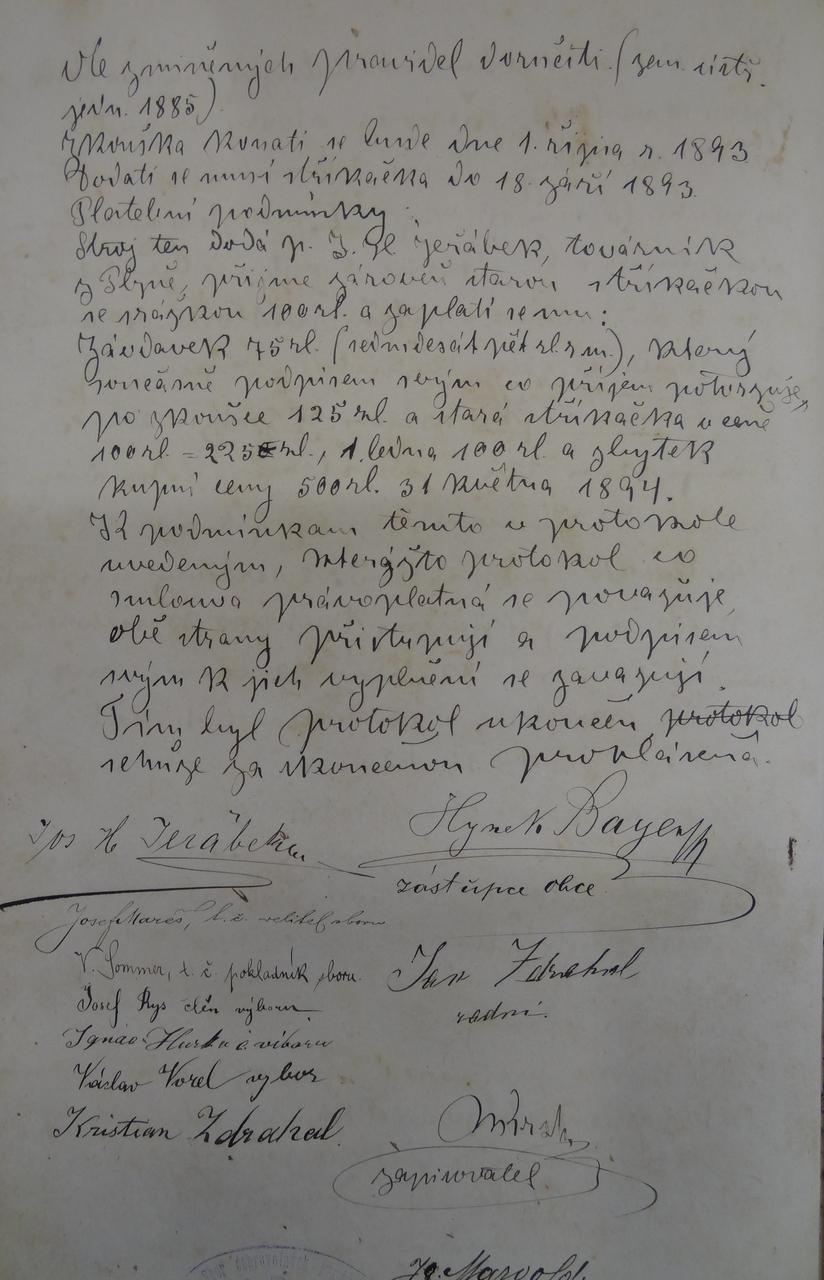 dle zmíněných pravidel doručiti. (zem. ústř.
jedn. 1885).
Zkouška konati se bude dne 1. října r. 1893
Dodati se musí stříkačka do 18. září 1893.
Platební podmínky:
Stroj ten dodá p. J. H. Jeřábek, továrník
z Plzně, přijme zároveň starou stříkačkou
se srážkou 100 zl. a zaplatí se mu:
Závdavek 75 zl. (sedmdesát pět zl. r. m.), který
současně podpisem svým co příjem potvrzuje,
po zkoušce 125 zl. a stará stříkačka v ceně
100 zl. = 225 zl., 1. ledna 100 zl. a zbytek
kupní ceny 500 zl. 31 května 1894.
K podmínkam těmto v protokole
uvedeným, kterýžto protokol co
smlouva právoplatná se považuje,
obě strany přistupují a podpisem
svým k jich vyplnění se zavazují.
Tím byl protokol ukončen, protokol
schůze za skončenou prohlášená.
Jos H Jeřábek
Hynek Bayer
zástupce obce
Josef Mareš, t. č. velitel sboru
V. Sommer, t. č. pokladník sboru.
Jan Zdrahal
radní.
Josef Rys člen výboru
Ignác Hurka č. víboru
Václav Vorel vybor
Kristian Zdrahal.
zapisovatel